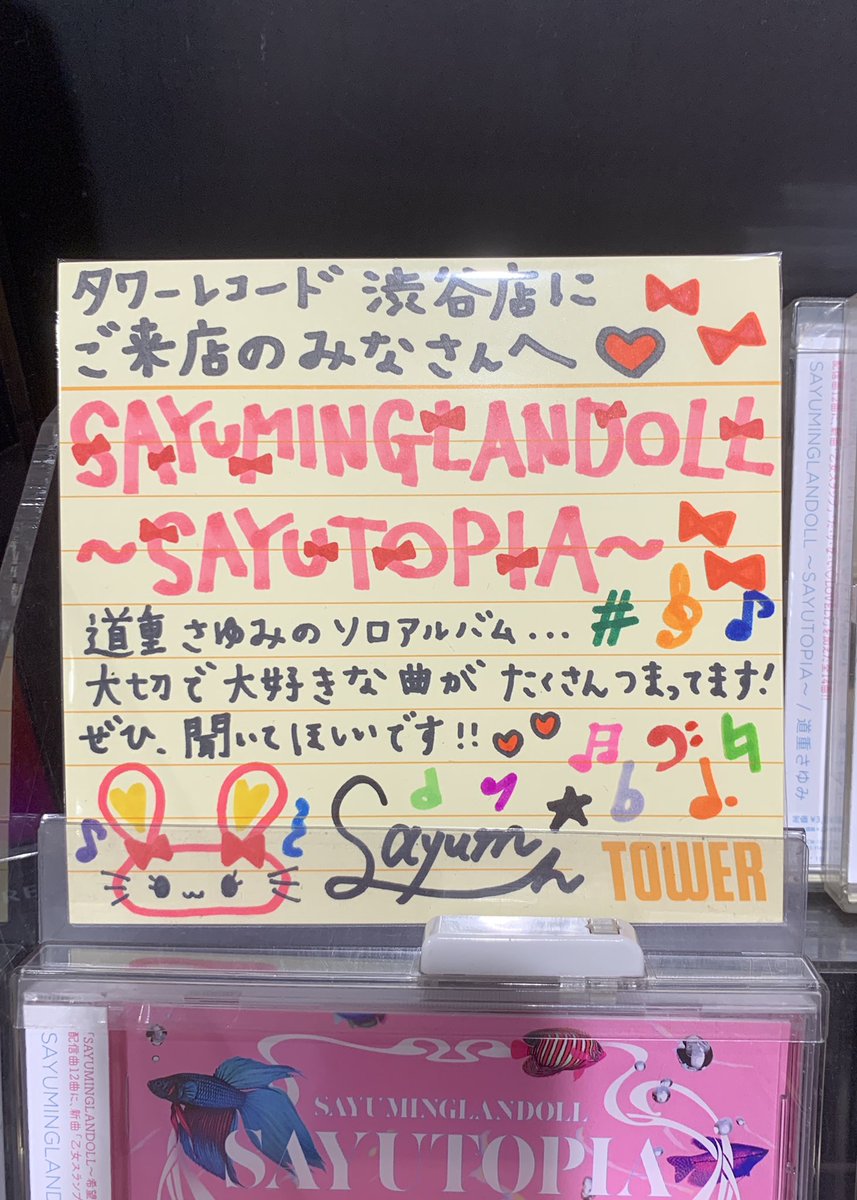 タワーレコード 渋谷店に
ご来店のみなさんへ
SAYUMINGLANDOLL
～SAYUTOPIA～
道重さゆみのソロアルバム...
大切で大好きな曲がたくさんつまってます!
ぜひ、聞いてほしいです!!
Sayumin
TOWER
SAYUMINGLANDOLL ～SAYUTOPIA～ / 道重さゆみ
「SAYUMINGLANDOLL～希望
配信曲12曲に、新曲「乙女スランプ
SAYUMINGLAND
SAYUMINGLANDOLL
SAYUTOPIA